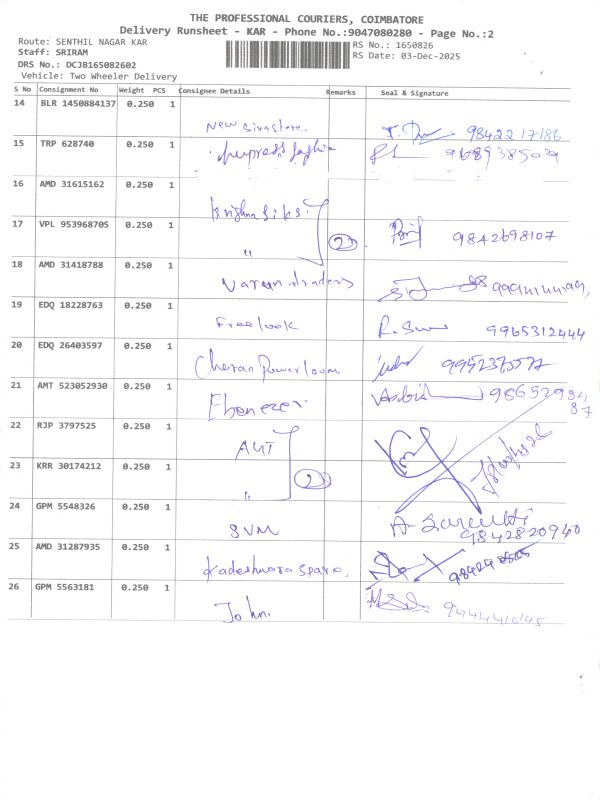 THE PROFESSIONAL COURIERS, COIMBATORE
Delivery Runsheet - KAR - Phone No.:9047080280 - Page No.:2
Route: SENTHIL NAGAR KAR
RS No.: 1650826
Staff: SRIRAM
RS Date: 03-Dec-2025
DRS No.: DCJB165082602
Vehicle: Two Wheeler Delivery
S No Consignment No Weight PCS Consignee Details Remarks Seal & Signature
14 BLR 1450884137 0.250 1
New Sivastore. 98422 17186
15 TRP 628740 0.250 1
16 AMD 31615162 0.250 1
Krishna silks.
17 VPL 953968705 0.250 1
" 2 9842698107
18 AMD 31418788 0.250 1
Varun traders
19 EDQ 18228763 0.250 1
Freelook 9965312444
20 EDQ 26403597 0.250 1
Cheran Powerloom
21 AMT 523052930 0.250 1
Ebenezer
22 RJP 3797525 0.250 1
23 KRR 30174212 0.250 1
" 2
24 GPM 5548326 0.250 1
SVM 9842820940
25 AMD 31287935 0.250 1
26 GPM 5563181 0.250 1
John.